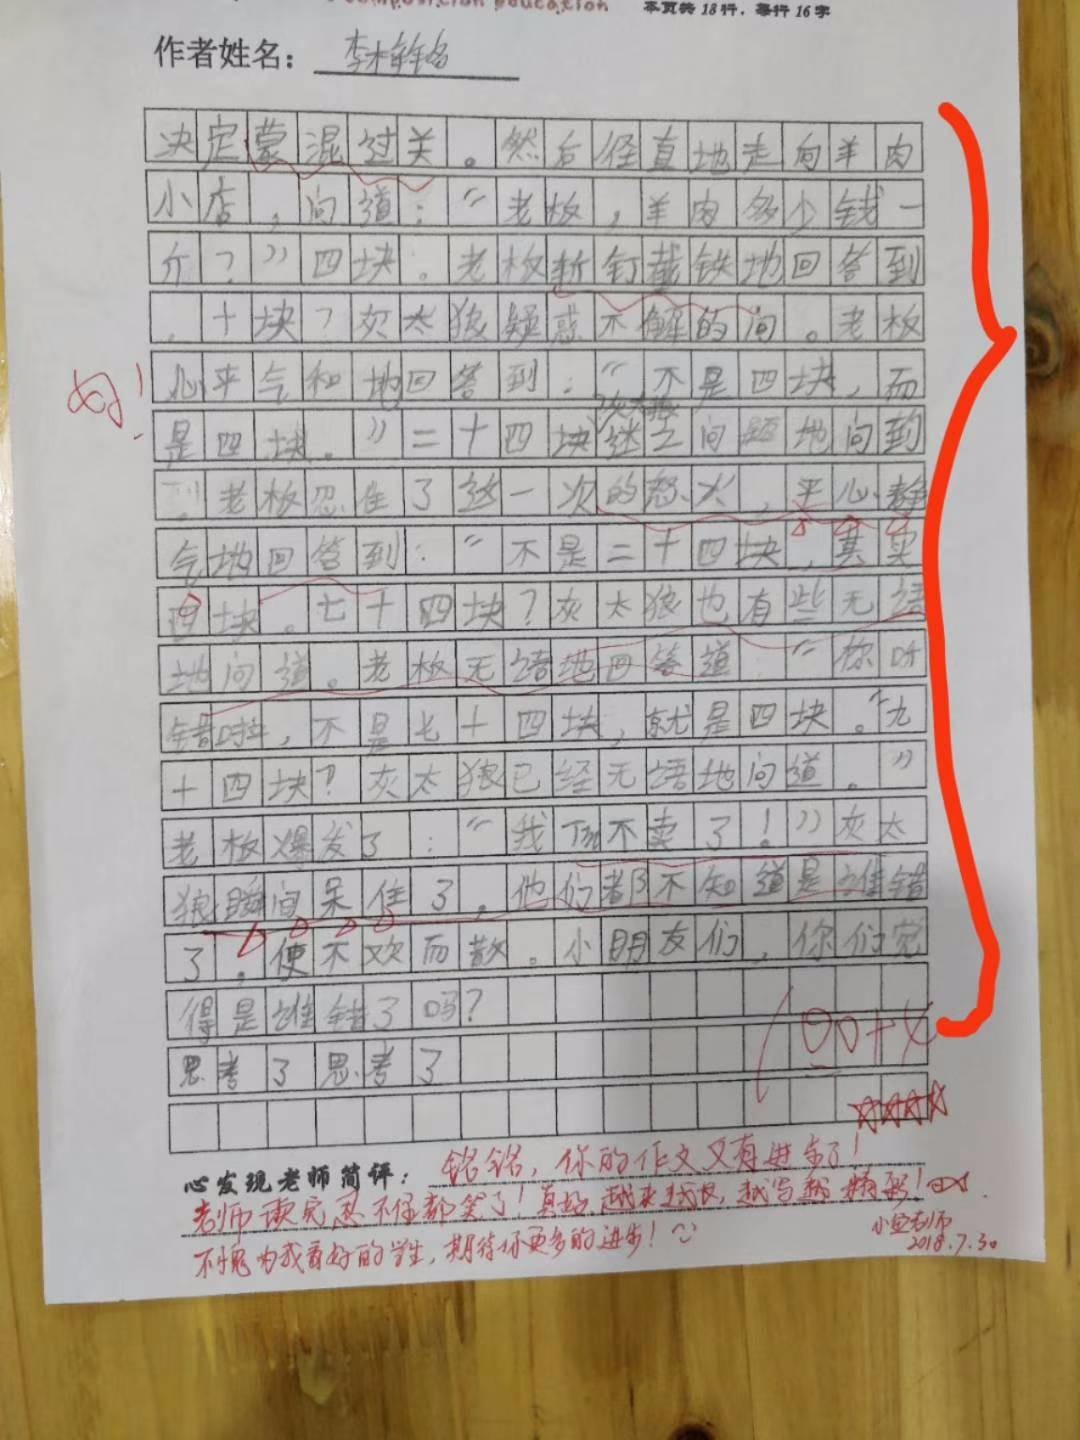 composition education
本页共18行，每行16字
作者姓名：李梓铭
决定蒙混过关。然后径直地走向羊肉
小店，问道：“老板，羊肉多少钱一
斤？”四块。老板斩钉截铁地回答到
。十块？灰太狼疑惑不解的问。老板
心平气和地回答到：“不是四块，而
好！
是四块。”二十四块灰太狼迷之问题地问到
老板忍住了这一次的怒火，平心静
气地回答到：“不是二十四块，其实
四块。七十四块？灰太狼也有些无语
地问道。老板无语地回答道：“你听
错啦，不是七十四块，就是四块。“九
十四块？灰太狼已经无语地问道。”
老板爆发了：“我不卖了！”灰太
狼瞬间呆住了。他们都不知道是谁错
了，使不欢而散。小朋友们，你们觉
得是谁错了吗？
思考了思考了
100+4
心发现老师简评：铭铭，你的作文又有进步了！
老师读完忍不住都笑了！真好，越来越，越写越精彩！
不愧为我看好的学生，期待你更多的进步！
老师
2018.7.30